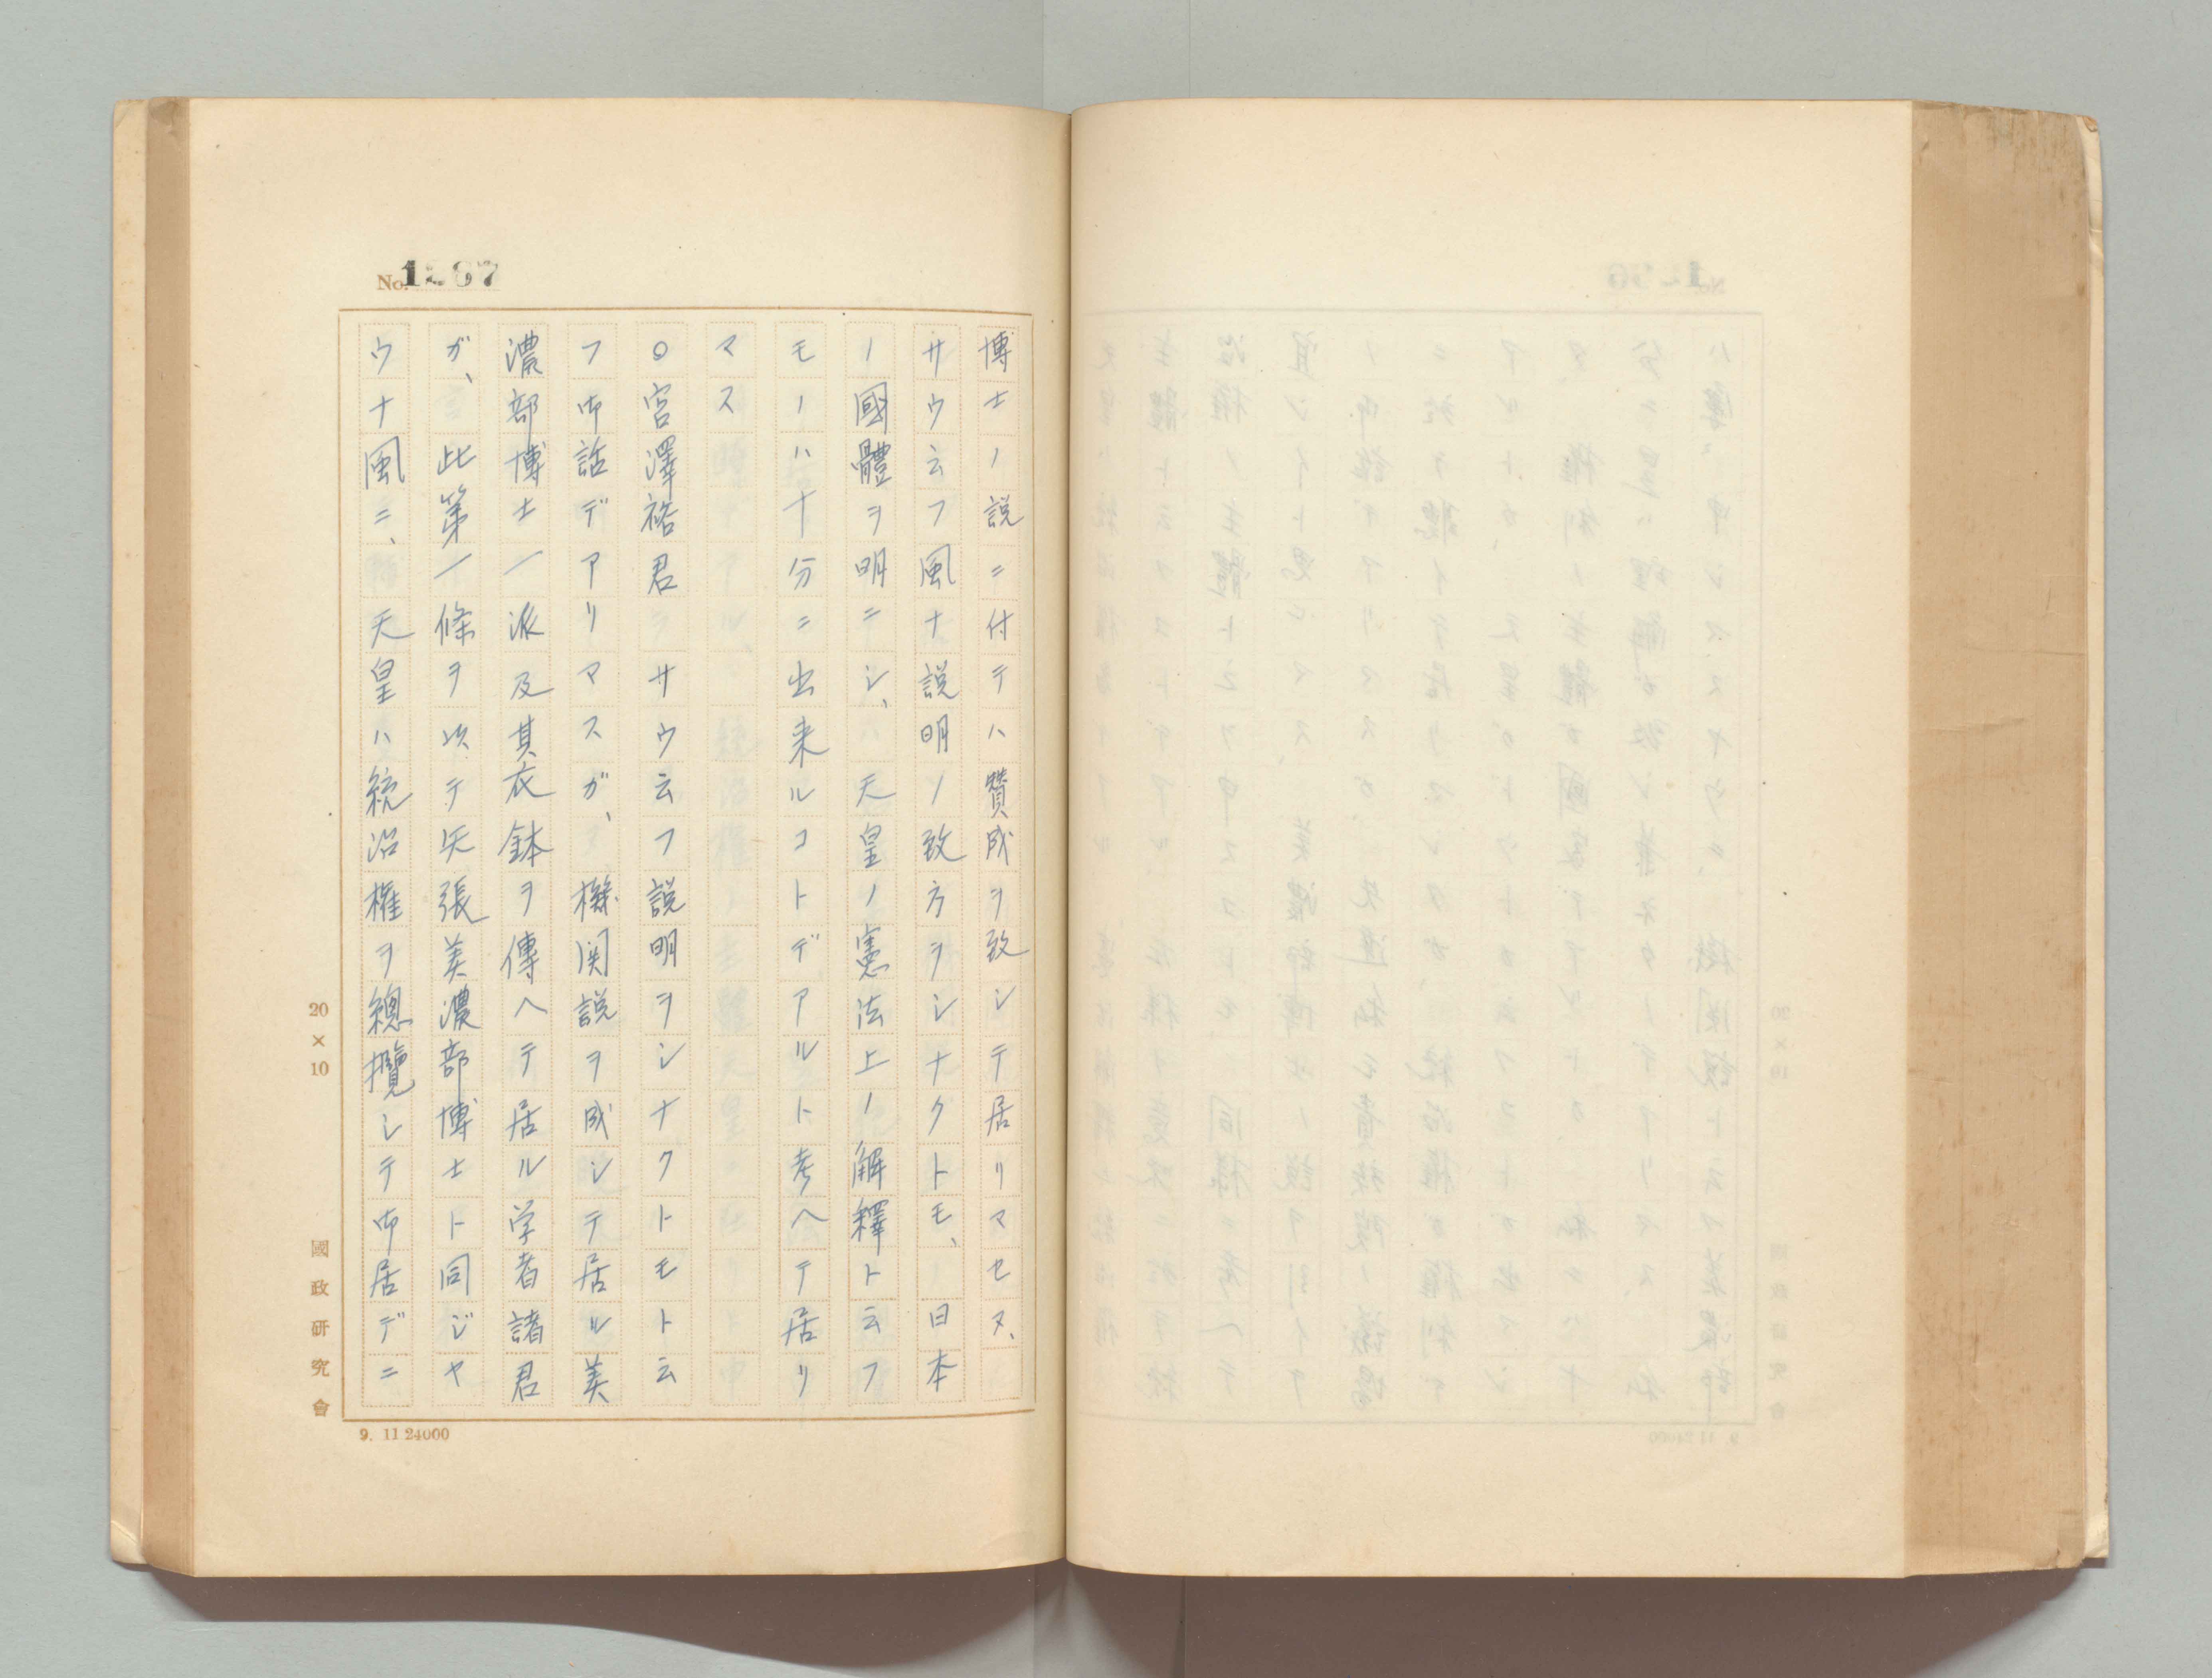 No. 1297
博士ノ説ニ付テハ賛成ヲ致シテ居リマセヌ、
サウ云フ風ナ説明ノ致方ヲシナクトモ、日本
ノ國體ヲ明ニシ、天皇ノ憲法上ノ解釋ト云フ
モノハ十分ニ出来ルコトデアルト考ヘテ居リ
マス
○宮澤裕君 サウ云フ説明ヲシナクトモト云
フ御話デアリマスガ、機関説ヲ成シテ居ル美
濃部博士一派及其衣鉢ヲ傳ヘテ居ル学者諸君
ガ、此第一條ヲ以テ矢張美濃部博士ト同ジヤ
ウナ風ニ、天皇ハ統治権ヲ總攬シテ御居デニ
20×10
國政研究會
9. 11 24000